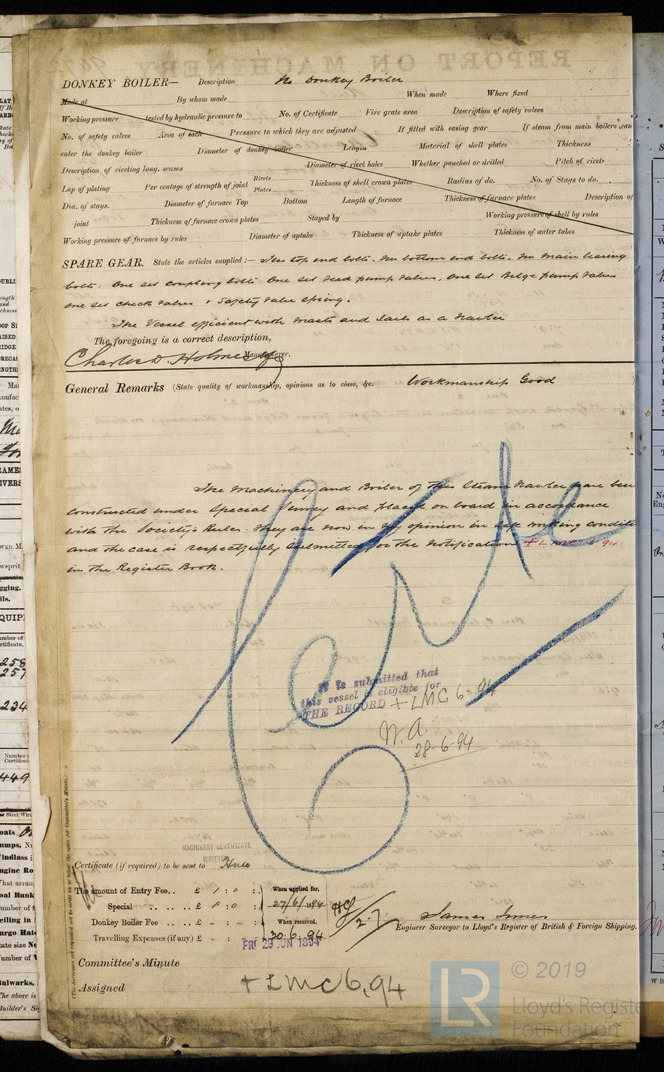 DONKEY BOILER— Description No Donkey Boiler
Made at By whom made When made Where fixed
Working pressure tested by hydraulic pressure to No. of Certificate Fire grate area Description of safety valves
No. of safety valves Area of each Pressure to which they are adjusted If fitted with easing gear If steam from main boilers can
enter the donkey boiler Diameter of donkey boiler Length Material of shell plates Thickness
Description of riveting long. seams Diameter of rivet holes Whether punched or drilled Pitch of rivets
Lap of plating Per centage of strength of joint Rivets Plates Thickness of shell crown plates Radius of do. No. of Stays to do.
Dia. of stays. Diameter of furnace Top Bottom Length of furnace Thickness of furnace plates Description of
joint Thickness of furnace crown plates Stayed by Working pressure of shell by rules
Working pressure of furnace by rules Diameter of uptake Thickness of uptake plates Thickness of water tubes
SPARE GEAR. State the articles supplied:— Two top end bolts. Two bottom end bolts. Two main bearing
bolts. One set coupling bolts One set feed pump valves, One set Bilge pump valves
one set check valves & Safety valve spring.
The Vessel efficient with masts and sails as a
The foregoing is a correct description,
Charles D. Holmes Manufacturer.
General Remarks (State quality of workmanship, opinions as to class, &c. Workmanship Good
The Machinery and Boiler of this Steam Trawler have been
constructed under Special Survey and placed on board in accordance
with the Society's Rules. They are now in my opinion in safe working condition
and the case is respectfully submitted for the notification + LMC 6.94.
in the Register Book.
It is submitted that
this vessel is eligible for
THE RECORD + LMC 6-94
28-6-94
MACHINERY CERTIFICATE
WRITTEN
Certificate (if required) to be sent to Hull
The amount of Entry Fee.. £ 1 : 0 : When applied for,
Special £ 8 : 0 : 27/6/1894
Donkey Boiler Fee £ - : - : When received,
Travelling Expenses (if any) £ - : 30.6.94
FRI 29 JUN 1894
James Innes
Engineer Surveyor to Lloyd's Register of British & Foreign Shipping.
Committee's Minute
Assigned + LMC 6,94
LR © 2019
Lloyd's Register
Foundation